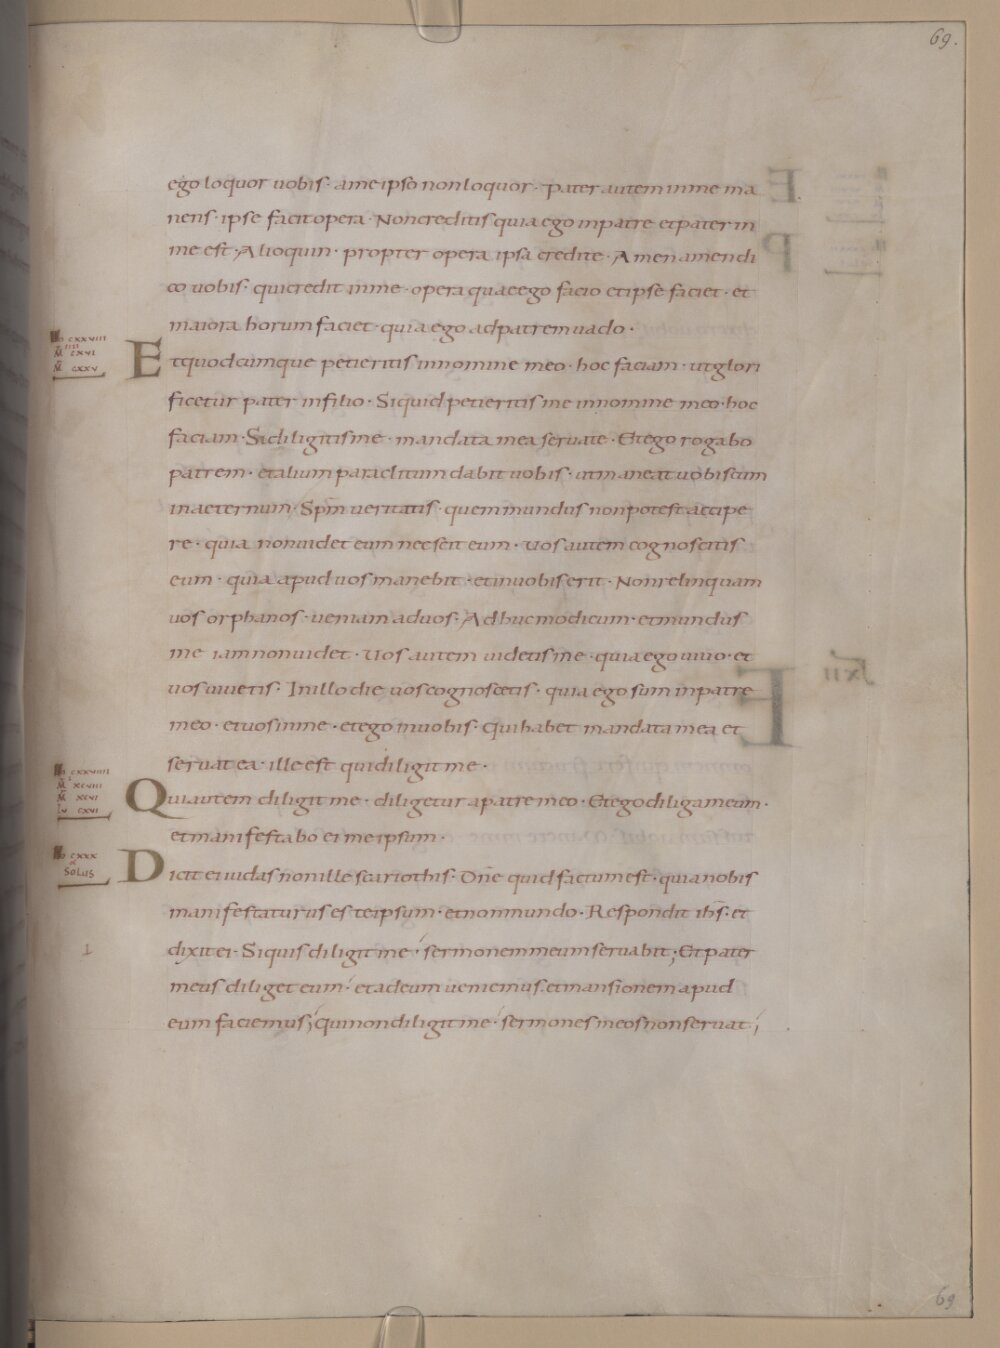 69.
ego loquor uobis· ameipso nonloquor· pater autem inme ma
nens· ipse facit opera· Noncreditis quia ego inpatre etpater in
me est· Alioquin· propter opera ipsa credite· Amen amen di
co uobis· quicredit inme· opera quaeego facio etipse faciet· et
maiora horum faciet· quia ego adpatrem uado·
Etquodcumque petieritis innomine meo· hoc faciam· utglori
ficetur pater infilio· Siquid petieritis me innomine meo· hoc
faciam· Sidiligitisme· mandata mea seruate· Etego rogabo
patrem· etalium paraclitum dabit uobis· utmaneat uobiscum
inaeternum· Spm ueritatis· quem mundus nonpotest accipe
re· quia nonuidet eum necscit eum· uos autem cognoscitis
eum· quia apud uos manebit· etinuobis erit· Nonrelinquam
uos orphanos· ueniam aduos· Adhuc modicum· etmundus
me iamnonuidet· Uos autem uidetisme· quiaego uiuo· et
uosuiuetis· Inillo die uoscognoscetis· quia ego sum inpatre
meo· etuosinme· etego inuobis· Quihabet mandata mea et
seruat ea· ille est quidiligit me·
Quiautem diligit me· diligetur apatre meo· Etego diligam eum·
etmanifestabo ei meipsum·
Dicit ei iudas nonille scariothis· Dne quid factum est· quianobis
manifestaturus es teipsum· etnonmundo· Respondit ihs· et
dixit ei· Siquis diligit me· sermonem meum seruabit; Etpater
meus diliget eum· etadeum ueniemus· etmansionem apud
eum faciemus; quinondiligit me· sermones meos nonseruat;
CXXVIII
M CXVI
M CXXV
CXXVIIII
M XCVIII
M XCVI
L CXVI
CXXX
SOLUS
1
69